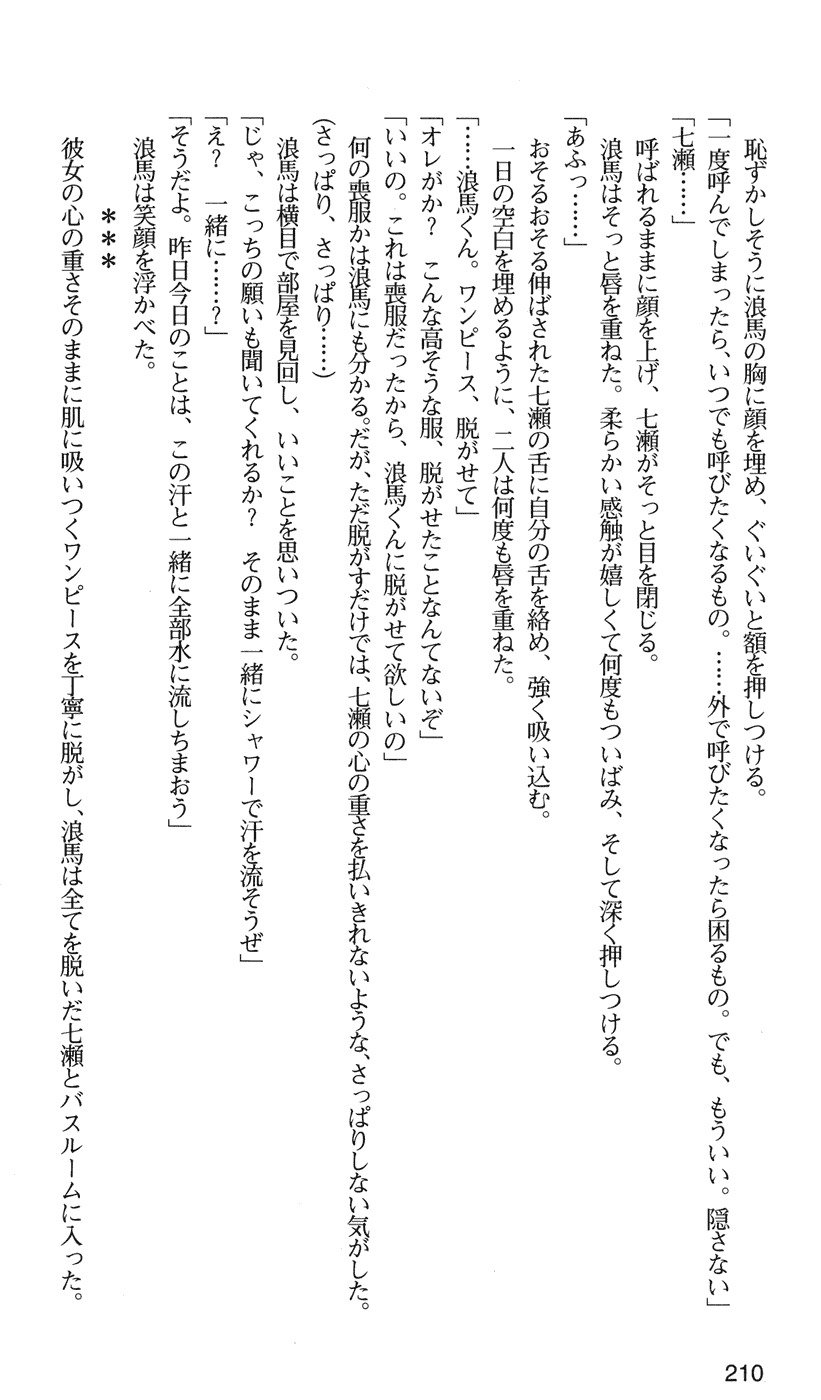 恥ずかしそうに浪馬の胸に顔を埋め、ぐいぐいと額を押しつける。
「一度呼んでしまったら、いつでも呼びたくなるもの。……外で呼びたくなったら困るもの。でも、もういい。隠さない」
「七瀬……」
呼ばれるままに顔を上げ、七瀬がそっと目を閉じる。
浪馬はそっと唇を重ねた。柔らかい感触が嬉しくて何度もついばみ、そして深く押しつける。
「あふっ……」
おそるおそる伸ばされた七瀬の舌に自分の舌を絡め、強く吸い込む。
一日の空白を埋めるように、二人は何度も唇を重ねた。
「……浪馬くん。ワンピース、脱がせて」
「オレがか？　こんな高そうな服、脱がせたことなんてないぞ」
「いいの。これは喪服だったから、浪馬くんに脱がせて欲しいの」
何の喪服かは浪馬にも分かる。だが、ただ脱がすだけでは、七瀬の心の重さを払いきれないような、さっぱりしない気がした。
(さっぱり、さっぱり……)
浪馬は横目で部屋を見回し、いいことを思いついた。
「じゃ、こっちの願いも聞いてくれるか？　そのまま一緒にシャワーで汗を流そうぜ」
「え？　一緒に……？」
「そうだよ。昨日今日のことは、この汗と一緒に全部水に流しちまおう」
浪馬は笑顔を浮かべた。
＊＊＊
彼女の心の重さそのままに肌に吸いつくワンピースを丁寧に脱がし、浪馬は全てを脱いだ七瀬とバスルームに入った。
210